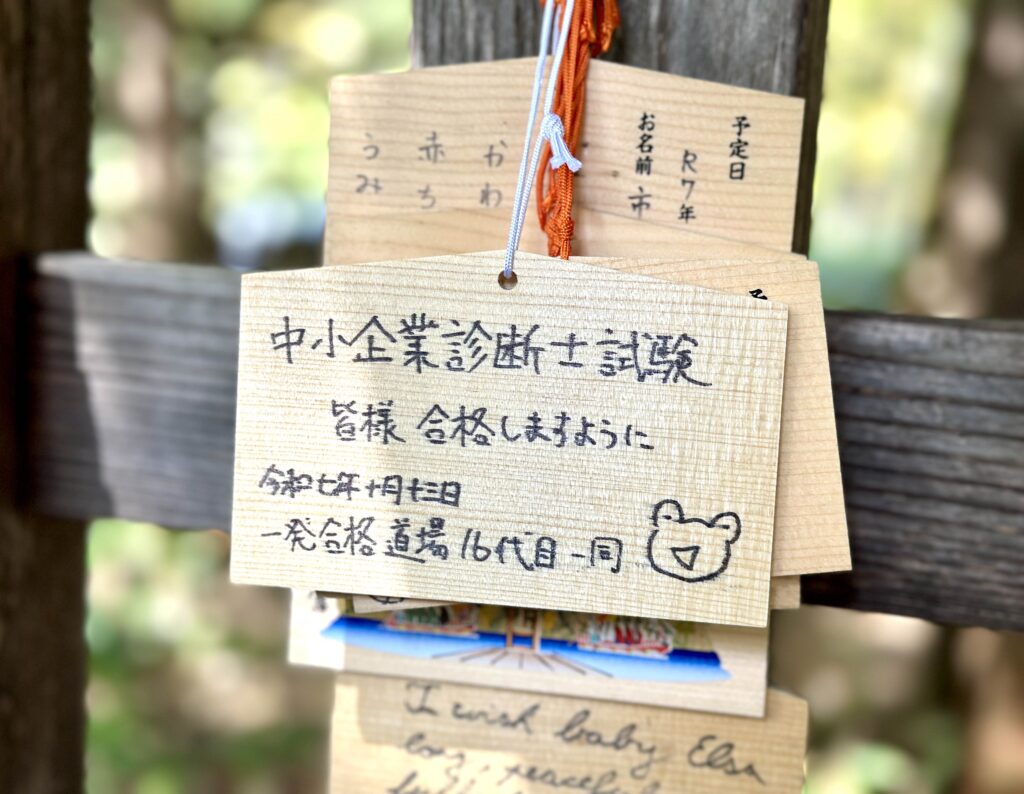 中小企業診断士試験
皆様 合格しますように
令和七年十月十三日
一発合格道場 16代目一同
予定日
R7年
お名前 市
かわ
赤ち
うみ
I wish baby Elsa